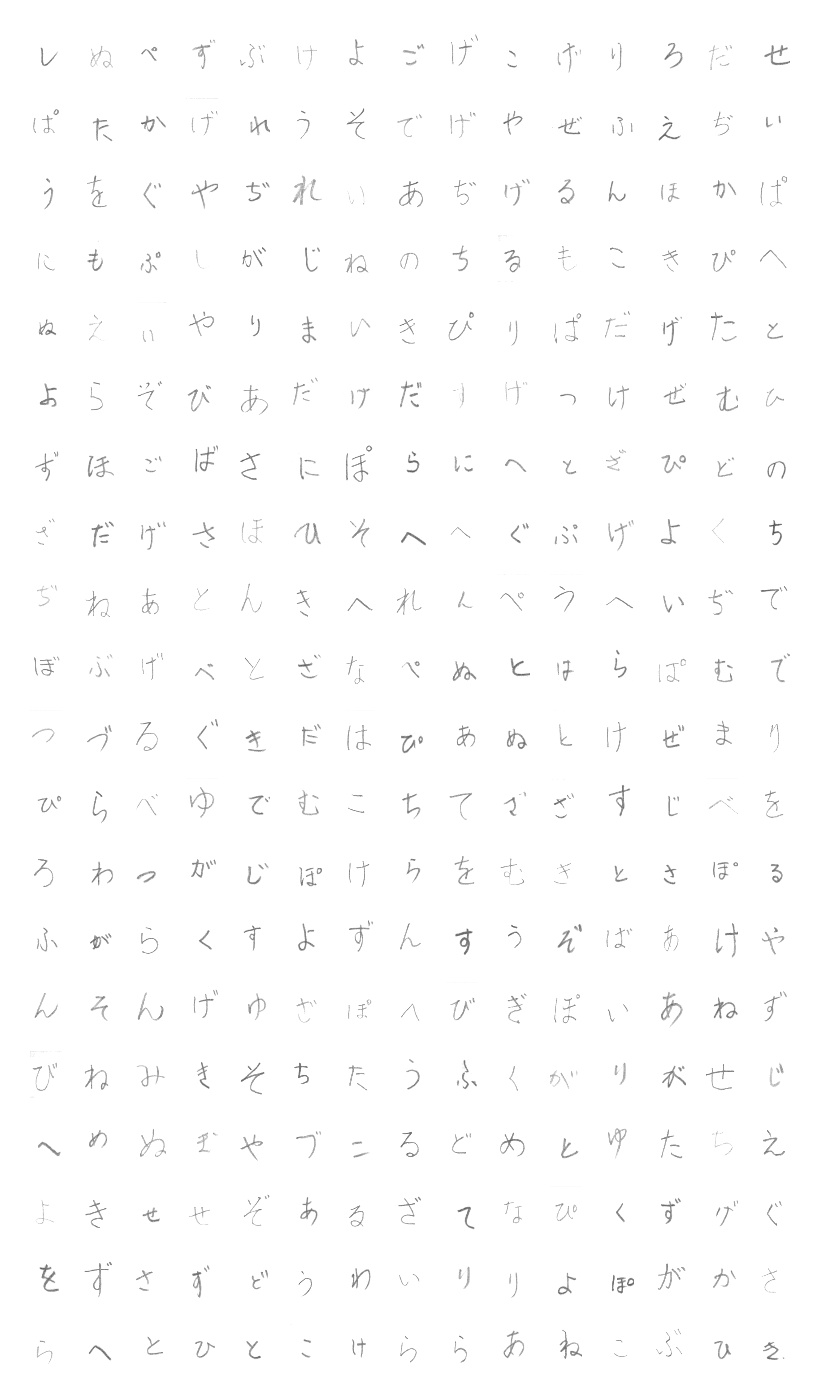 しぬぺずぶけよごげこげりろだせ
ぱたかげれうそでげやぜふえぢい
うをぐやぢれいあぢげるんほかぱ
にもぷしがじねのちるもこきぴへ
ぬえいやりまいきぴりぱだげたと
よらぞびあだけだすげつけぜむひ
ずほごばさにぽらにへとざぴどの
ざだげさほひそへへぐぷげよくち
ぢねあとんきへれんぺうへいぢで
ぼぶげべとざなぺぬとはらぱむで
つづるぐきだはぴあぬとけぜまり
ぴらべゆでむこちてざざすじべを
ろわっがじぽけらをむきとさぽる
ふがらくすよずんすうぞばあけや
んそんげゆざぽへびぎぽいあねず
びねみきそちたうふくがりがせじ
へめぬまやづこるどめとゆたちえ
よきせせぞあるざてなぴくずげぐ
をずさずどうわいりりよぽがかさ
らへとひとこけららあねこぶひき